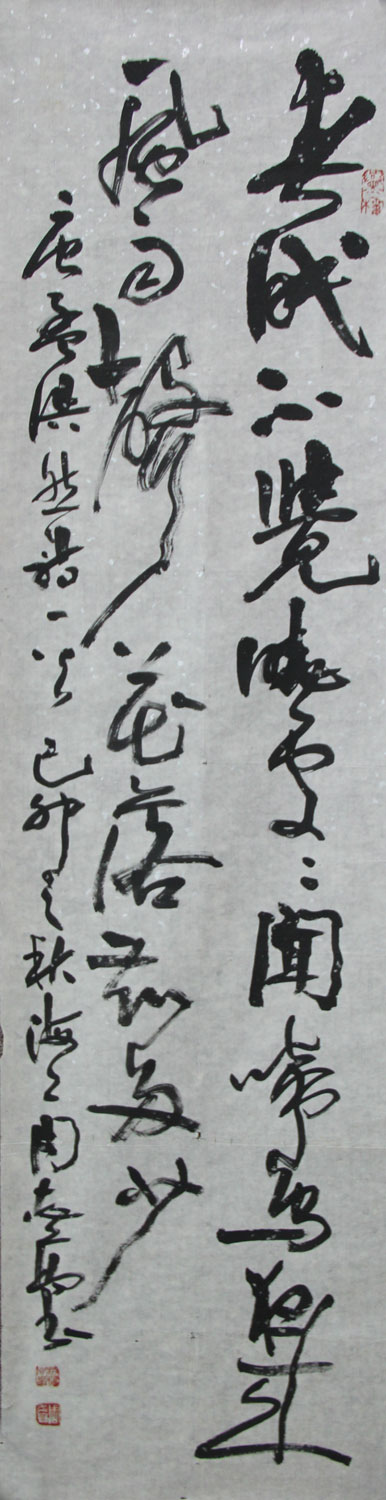 春眠不覺曉處々聞啼鳥夜來
風雨聲花落知多少
唐孟浩然詩一首己卯之秋海上周志高书